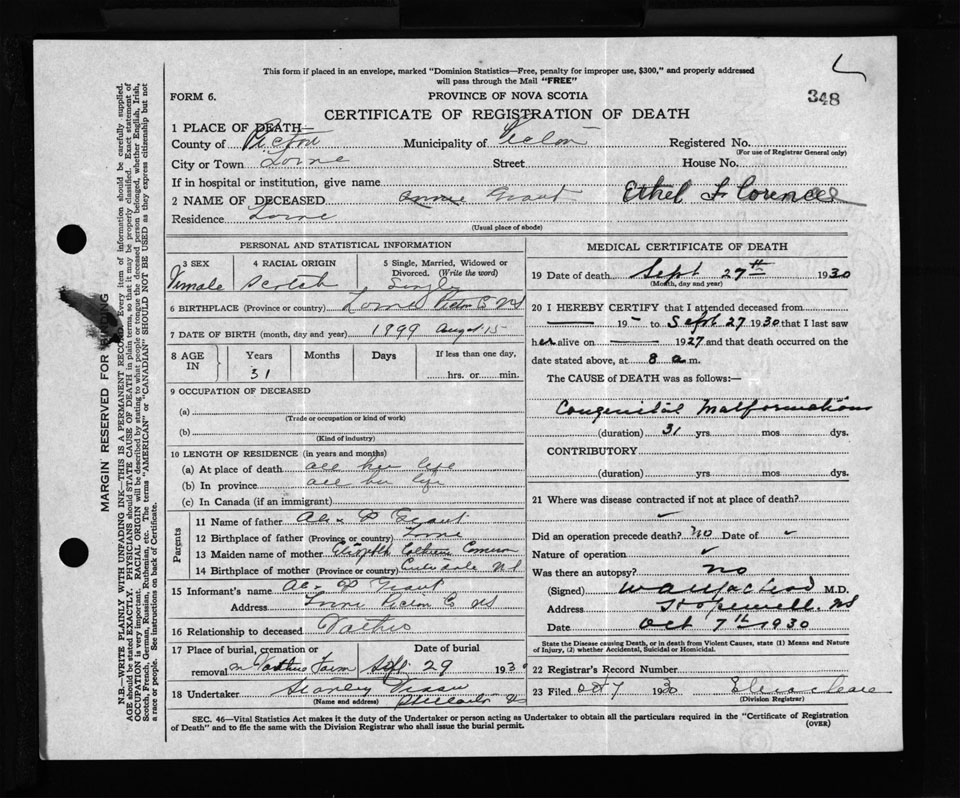 This form if placed in an envelope, marked "Dominion Statistics—Free, penalty for improper use, $300," and properly addressed
will pass through the Mail "FREE"
FORM 6.
PROVINCE OF NOVA SCOTIA
348
CERTIFICATE OF REGISTRATION OF DEATH
1 PLACE OF DEATH—
County of Pictou Municipality of Pictou Registered No.
(For use of Registrar General only)
City or Town Lorne Street House No.
If in hospital or institution, give name
2 NAME OF DECEASED Annie Grant Ethel Florence
Residence Lorne
(Usual place of abode)
PERSONAL AND STATISTICAL INFORMATION
3 SEX 4 RACIAL ORIGIN 5 Single, Married, Widowed or
Divorced. (Write the word)
Female Scotch Single
6 BIRTHPLACE (Province or country) Lorne Pictou C NS
7 DATE OF BIRTH (month, day and year) 1899 August 15
8 AGE IN Years Months Days If less than one day,
31 hrs. or min.
9 OCCUPATION OF DECEASED
(a)
(Trade or occupation or kind of work)
(b)
(Kind of industry)
10 LENGTH OF RESIDENCE (in years and months)
(a) At place of death all her life
(b) In province all her life
(c) In Canada (if an immigrant)
Parents
11 Name of father Alex P Grant
12 Birthplace of father (Province or country) Lorne
13 Maiden name of mother Elizabeth Cameron
14 Birthplace of mother (Province or country) NS
15 Informant's name Alex P Grant
Address Lorne Pictou C NS
16 Relationship to deceased Father
17 Place of burial, cremation or Date of burial
removal on Fathers Farm Sept 29 1930
18 Undertaker Stanley Fraser
(Name and address)
MEDICAL CERTIFICATE OF DEATH
19 Date of death Sept 27th 1930
(Month, day and year)
20 I HEREBY CERTIFY that I attended deceased from
— 19 - to Sept 27 1930 that I last saw
her alive on — 1927 and that death occurred on the
date stated above, at 8 a m.
The CAUSE of DEATH was as follows:—
Congenital Malformations
(duration) 31 yrs mos dys.
CONTRIBUTORY
(duration) yrs. mos. dys.
21 Where was disease contracted if not at place of death?
Did an operation precede death? No Date of
Nature of operation
Was there an autopsy? No
(Signed) W A MacLeod M.D.
Address Hopewell. NS
Date Oct 7th 1930
State the Disease causing Death, or in death from Violent Causes, state (1) Means and Nature
of Injury, (2) whether Accidental, Suicidal or Homicidal.
22 Registrar's Record Number
23 Filed Oct 7 1930
(Division Registrar)
SEC. 46—Vital Statistics Act makes it the duty of the Undertaker or person acting as Undertaker to obtain all the particulars required in the "Certificate of Registration
of Death" and to file the same with the Division Registrar who shall issue the burial permit.
(OVER)
MARGIN RESERVED FOR BINDING
N.B.—WRITE PLAINLY WITH UNFADING INK—THIS IS A PERMANENT RECORD. Every item of information should be carefully supplied.
AGE should be stated EXACTLY. PHYSICIANS should STATE CAUSE OF DEATH in plain terms, so that it may be properly classified. Exact statement of
OCCUPATION is very important. RACIAL ORIGIN will be described by stating to what people or tongue the deceased person belonged, whether English, Irish,
Scotch, French, German, Russian, Ruthenian, etc. The terms "AMERICAN" or "CANADIAN" SHOULD NOT BE USED as they express citizenship but not
a race or people. See instructions on back of Certificate.